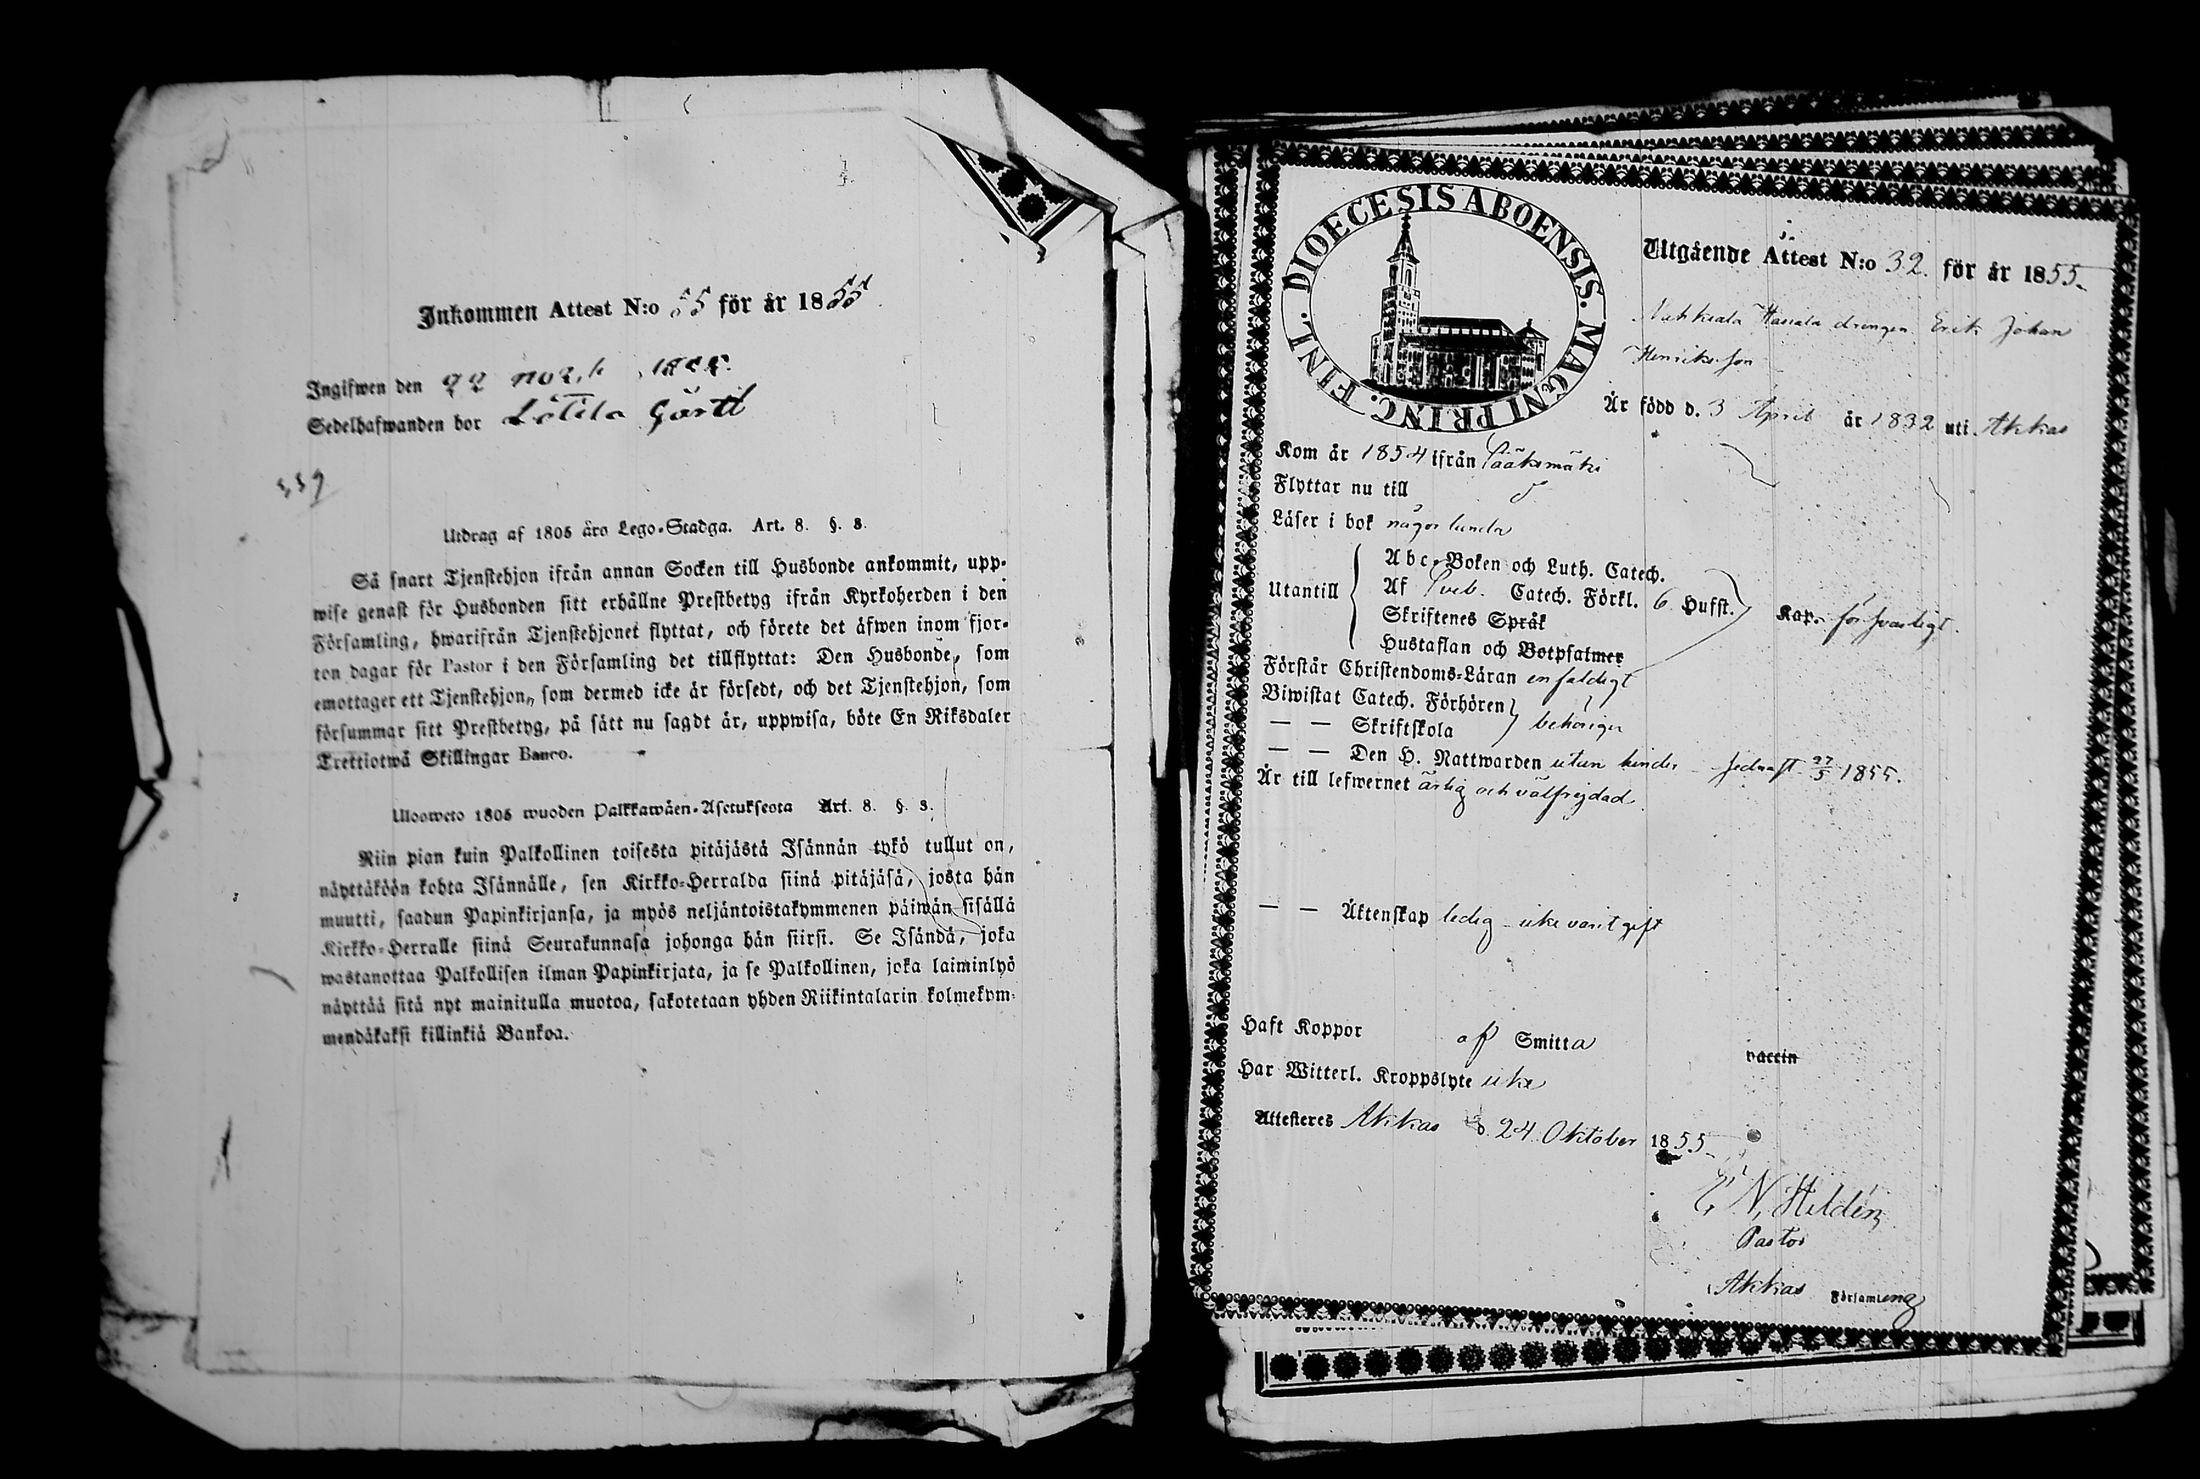 Inkommen Attest N:o 55 för år 1855
Ingifwen den 1855
Sedelhafwanden bor
Utdrag af 1805 års Lego-Stadga. Art. 8. §. 8.
Så snart Tjenstehjon ifrån annan Socken till Husbonde ankommit, upp-
wise genast för Husbonden sitt erhållne Prestbetyg ifrån Kyrkoherden i den
Församling, hwarifrån Tjenstehjonet flyttat, och förete det äfwen inom fjor-
ton dagar för Pastor i den Församling det tillflyttat: Den Husbonde, som
emottager ett Tjenstehjon, som dermed icke är försedt, och det Tjenstehjon, som
försummar sitt Prestbetyg, på sätt nu sagdt är, uppwisa, böte En Riksdaler
Trettiotwå Skillingar Banco.
Ulosweto 1805 wuoden Palkkawäen-Asetuksesta Art. 8. §. 8.
Niin pian kuin Palkollinen toisesta pitäjästä Isännän tykö tullut on,
näyttäköön kohta Isännälle, sen Kirkko-Herralda siinä pitäjäsä, josta hän
muutti, saadun Papinkirjansa, ja myös neljäntoistakymmenen päiwän sisällä
Kirkko-Herralle siinä Seurakunnasa johonga hän siirsi. Se Isändä, joka
wastanottaa Palkollisen ilman Papinkirjata, ja se Palkollinen, joka laiminlyö
näyttää sitä nyt mainitulla muotoa, sakotetaan yhden Riikintalarin kolmekym-
mendäkaksi killinkiä Bankoa.
DIOECESIS ABOENSIS. MAGNI PRINC. FINL.
Utgående Attest N:o 32. för år 1855.
drengen Erik Johan
Henriksson
Är född d. 3 April år 1832 uti Akkas
Kom år 1854 ifrån Sääksmäki
Flyttar nu till
Läser i bok någorlunda
Utantill
Abc-Boken och Luth. Catech.
Af Sveb. Catech. Förkl. 6 Hufst.
Skriftenes Språk
Kap. försvarligt.
Hustaflan och Botpsalmer
Förstår Christendoms-Läran enfaldigt
Biwistat Catech. Förhören
— — Skriftskola behörigen
— — Den H. Nattwarden utan hinder sednast 27/5 1855.
Är till lefwernet ärlig och välfrejdad.
— — Äktenskap ledig icke varit gift
Haft Koppor af Smitta vaccin
Har Witterl. Kroppslyte icke
Attesteres Akkas d. 24 Oktober 1855
E. N. Hildén
Pastor
Akkas Församling